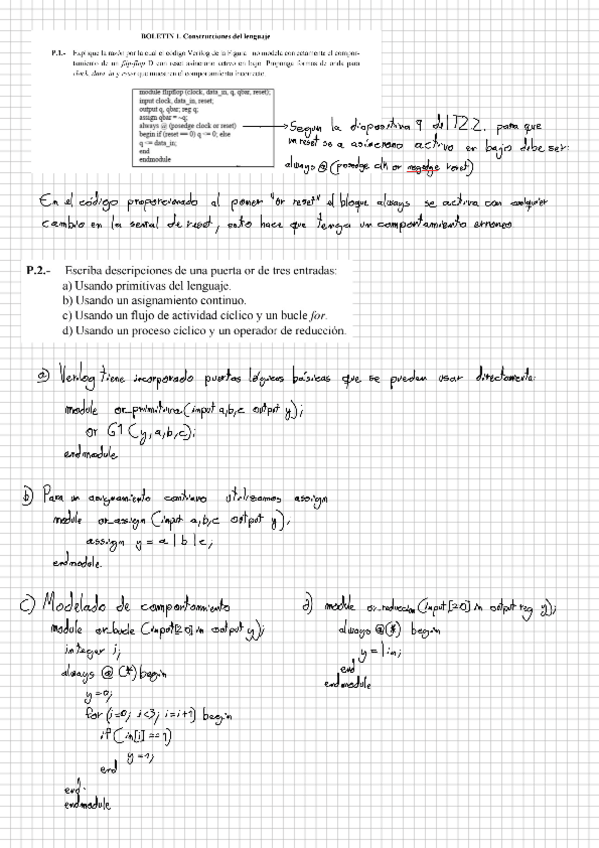 BOLETIN 1. Construcciones del lenguaje
P.1.- Explique la razón por la cual el código Verilog de la Figura no modela correctamente el compor-
tamiento de un flipflop D con reset asíncrono activo en bajo. Proponga formas de onda para
clock, data_in y reset que muestren el comportamiento incorrecto.
module flipflop (clock, data_in, q, qbar, reset);
input clock, data_in, reset;
output q, qbar; reg q;
assign qbar = ~q;
always @ (posedge clock or reset)
begin if (reset == 0) q <= 0; else
q <= data_in;
end
endmodule
Segun la diapositiva 9 del T2.2. para que
un reset sea asincrono activo en bajo debe ser:
always @ (posedge clk or negedge reset)
En el código proporcionado al poner "or reset" el bloque always se activa con cualquier
cambio en la señal de reset, esto hace que tenga un comportamiento erroneo
P.2.- Escriba descripciones de una puerta or de tres entradas:
a) Usando primitivas del lenguaje.
b) Usando un asignamiento continuo.
c) Usando un flujo de actividad cíclico y un bucle for.
d) Usando un proceso cíclico y un operador de reducción.
a) Verilog tiene incorporado puertas lógicas básicas que se pueden usar directamente:
module or_primitiva (input a,b,c output y);
or G1 (y,a,b,c);
endmodule
b) Para un asignamiento continuo utilizamos assign
module or_assign (input a,b,c output y),
assign y = a | b | c;
endmodule.
c) Modelado de comportamiento
module or_bucle (input[2:0] in output y);
integer i;
always @ (*) begin
y=0;
for (i=0; i<3; i=i+1) begin
if (in[i] == 1)
y=1;
end
end.
endmodule
d) module or_reduccion (input [2:0] in output reg y);
always @(*) begin
y = | in;
end
endmodule